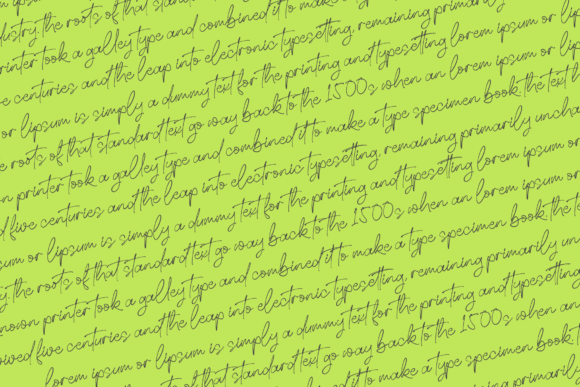 dustry. the roots of that standard
printer took a galley type and combined it to m
e centuries and the leap into electronic typesetting, remaining primaril
or lipsum is simply a dummy text for the printing and typesetting lorem ipsum or lip
e roots of that standard text go way back to the 1500s when an lorem ipsum or lip
n printer took a galley type and combined it to make a type specimen book. the text t
d five centuries and the leap into electronic typesetting, remaining primarily uncha
sum or lipsum is simply a dummy text for the printing and typesetting lorem ipsum or
y. the roots of that standard text go way back to the 1500s when an lorem ipsum or
nown printer took a galley type and combined it to make a type specimen book. the te
owed five centuries and the leap into electronic typesetting, remaining primarily un
lorem ipsum or lipsum is simply a dummy text for the printing and typesetting
of that standard text go way back to the 1500s when an
combined it to make a type specimen book.
remaining primarily